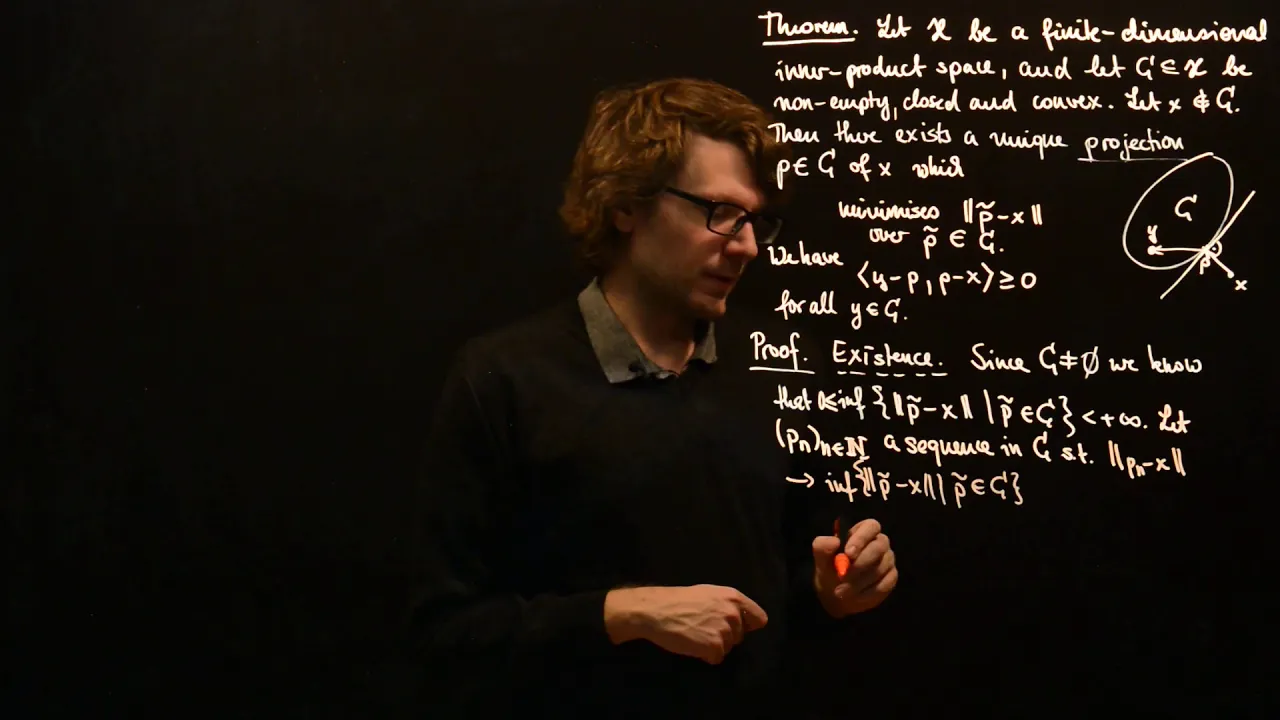 Theorem. Let ℋ be a finite-dimensional
inner-product space, and let C ⊆ ℋ be
non-empty, closed and convex. Let x ∉ C.
Then there exists a unique projection
p ∈ C of x which
minimises ‖p̃-x‖
over p̃ ∈ C.
We have
⟨y-p, p-x⟩ ≥ 0
for all y ∈ C.
C
y
p
x
Proof. Existence. Since C ≠ ∅ we know
that 0 ≤ inf {‖p̃-x‖ | p̃ ∈ C} < +∞. Let
(pₙ)ₙ∈ℕ a sequence in C s.t. ‖pₙ-x‖
→ inf{‖p̃-x‖ | p̃ ∈ C}